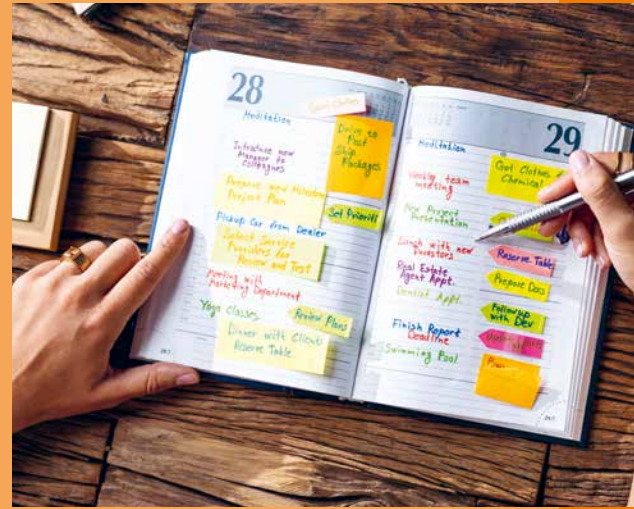 28
Meditation
Drive to
Post
Ship
Packages
Introduce new
Manager to
Collegues
Prepare new Milestone
Project Plan
Set Prioriti
Pickup Car from Dealer
Select Service
Providers for
Review and Test
Meeting with
Marketing Department
Yoga Classes
Review Plans
Dinner with Clients
Reserve Table
29
Meditation
Get Clothes
Chemical
Weekly team
meeting
New Project
Presentation
Lunch with new
Investors
Reserve Table
Real Estate
Agent Appt.
Prepare Docs
Dentist Appt.
Followup
with Dev
Finish Report
Deadline
Swimming Pool